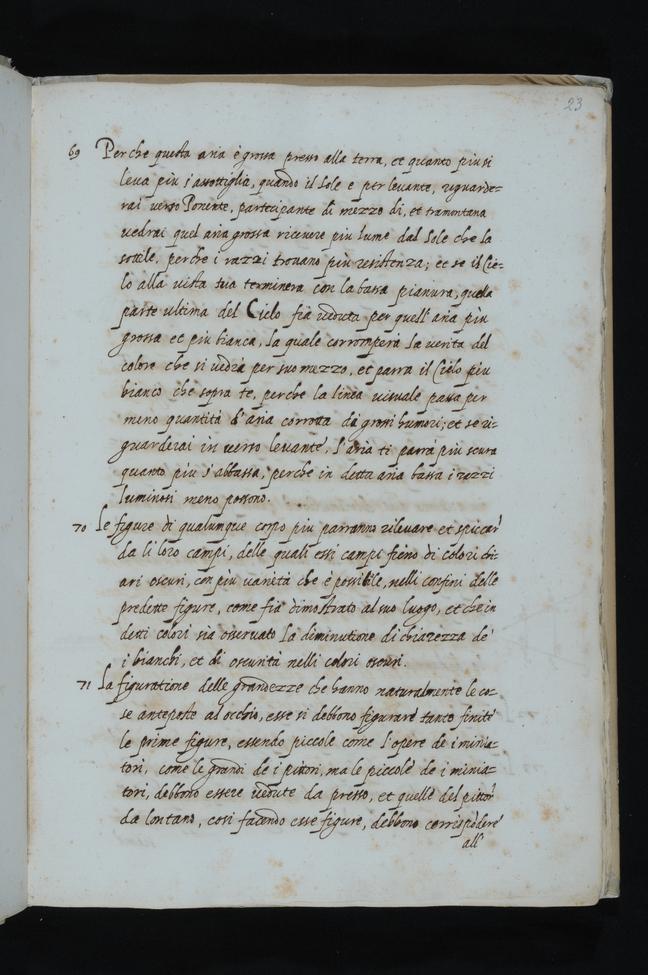 23
69 Perche questa aria è grossa presso alla terra, et quanto piu si
leva più s'assottiglia, quando il sole e per levante, riguarde-
rai verso Ponente, partecipante di mezzo di, et tramontana
vedrai quel aria grossa ricevere piu lume dal Sole che la
sottile, perche i razzi trovano più resistenza; et se il Cie-
lo alla vista tua terminera con la bassa pianura, quela
parte ultima del Cielo fia veduta per quell' aria più
grossa et più bianca, la quale corromperà la verita del
colore che si vedrà per suo mezzo, et parra il Cielo piu
bianco che sopra te, perche la linea visuale passa per
meno quantità d'aria corrotta da grossi humori; et se ri-
guarderai in verso levante, l'aria ti parrà più scura
quanto più s'abbassa, perche in detta aria bassa i razzi
luminosi meno passono.
70 Le figure di qualunque corpo piu parranno rilevare et spiccar
da li loro campi, delle quali essi campi sieno di colori chi-
ari oscuri, con più varietà che è possibile, nelli confini delle
predette figure, come fia dimostrato al suo luogo, et che in
detti colori sia osservato la diminutione di chiarezza de'
i bianchi, et di oscurità nelli colori oscuri.
71 La figuratione delle grandezze che hanno naturalmente le co-
se anteposte al occhio, esse si debbono figurare tanto finite
le prime figure, essendo piccole come l'opere de i minia-
tori, come le grandi de i pittori, ma le piccole de i minia-
tori, debbono essere vedute da presso, et quelle del pittor
da lontano, cosi facendo esse figure, debbono corrispōdere
all'